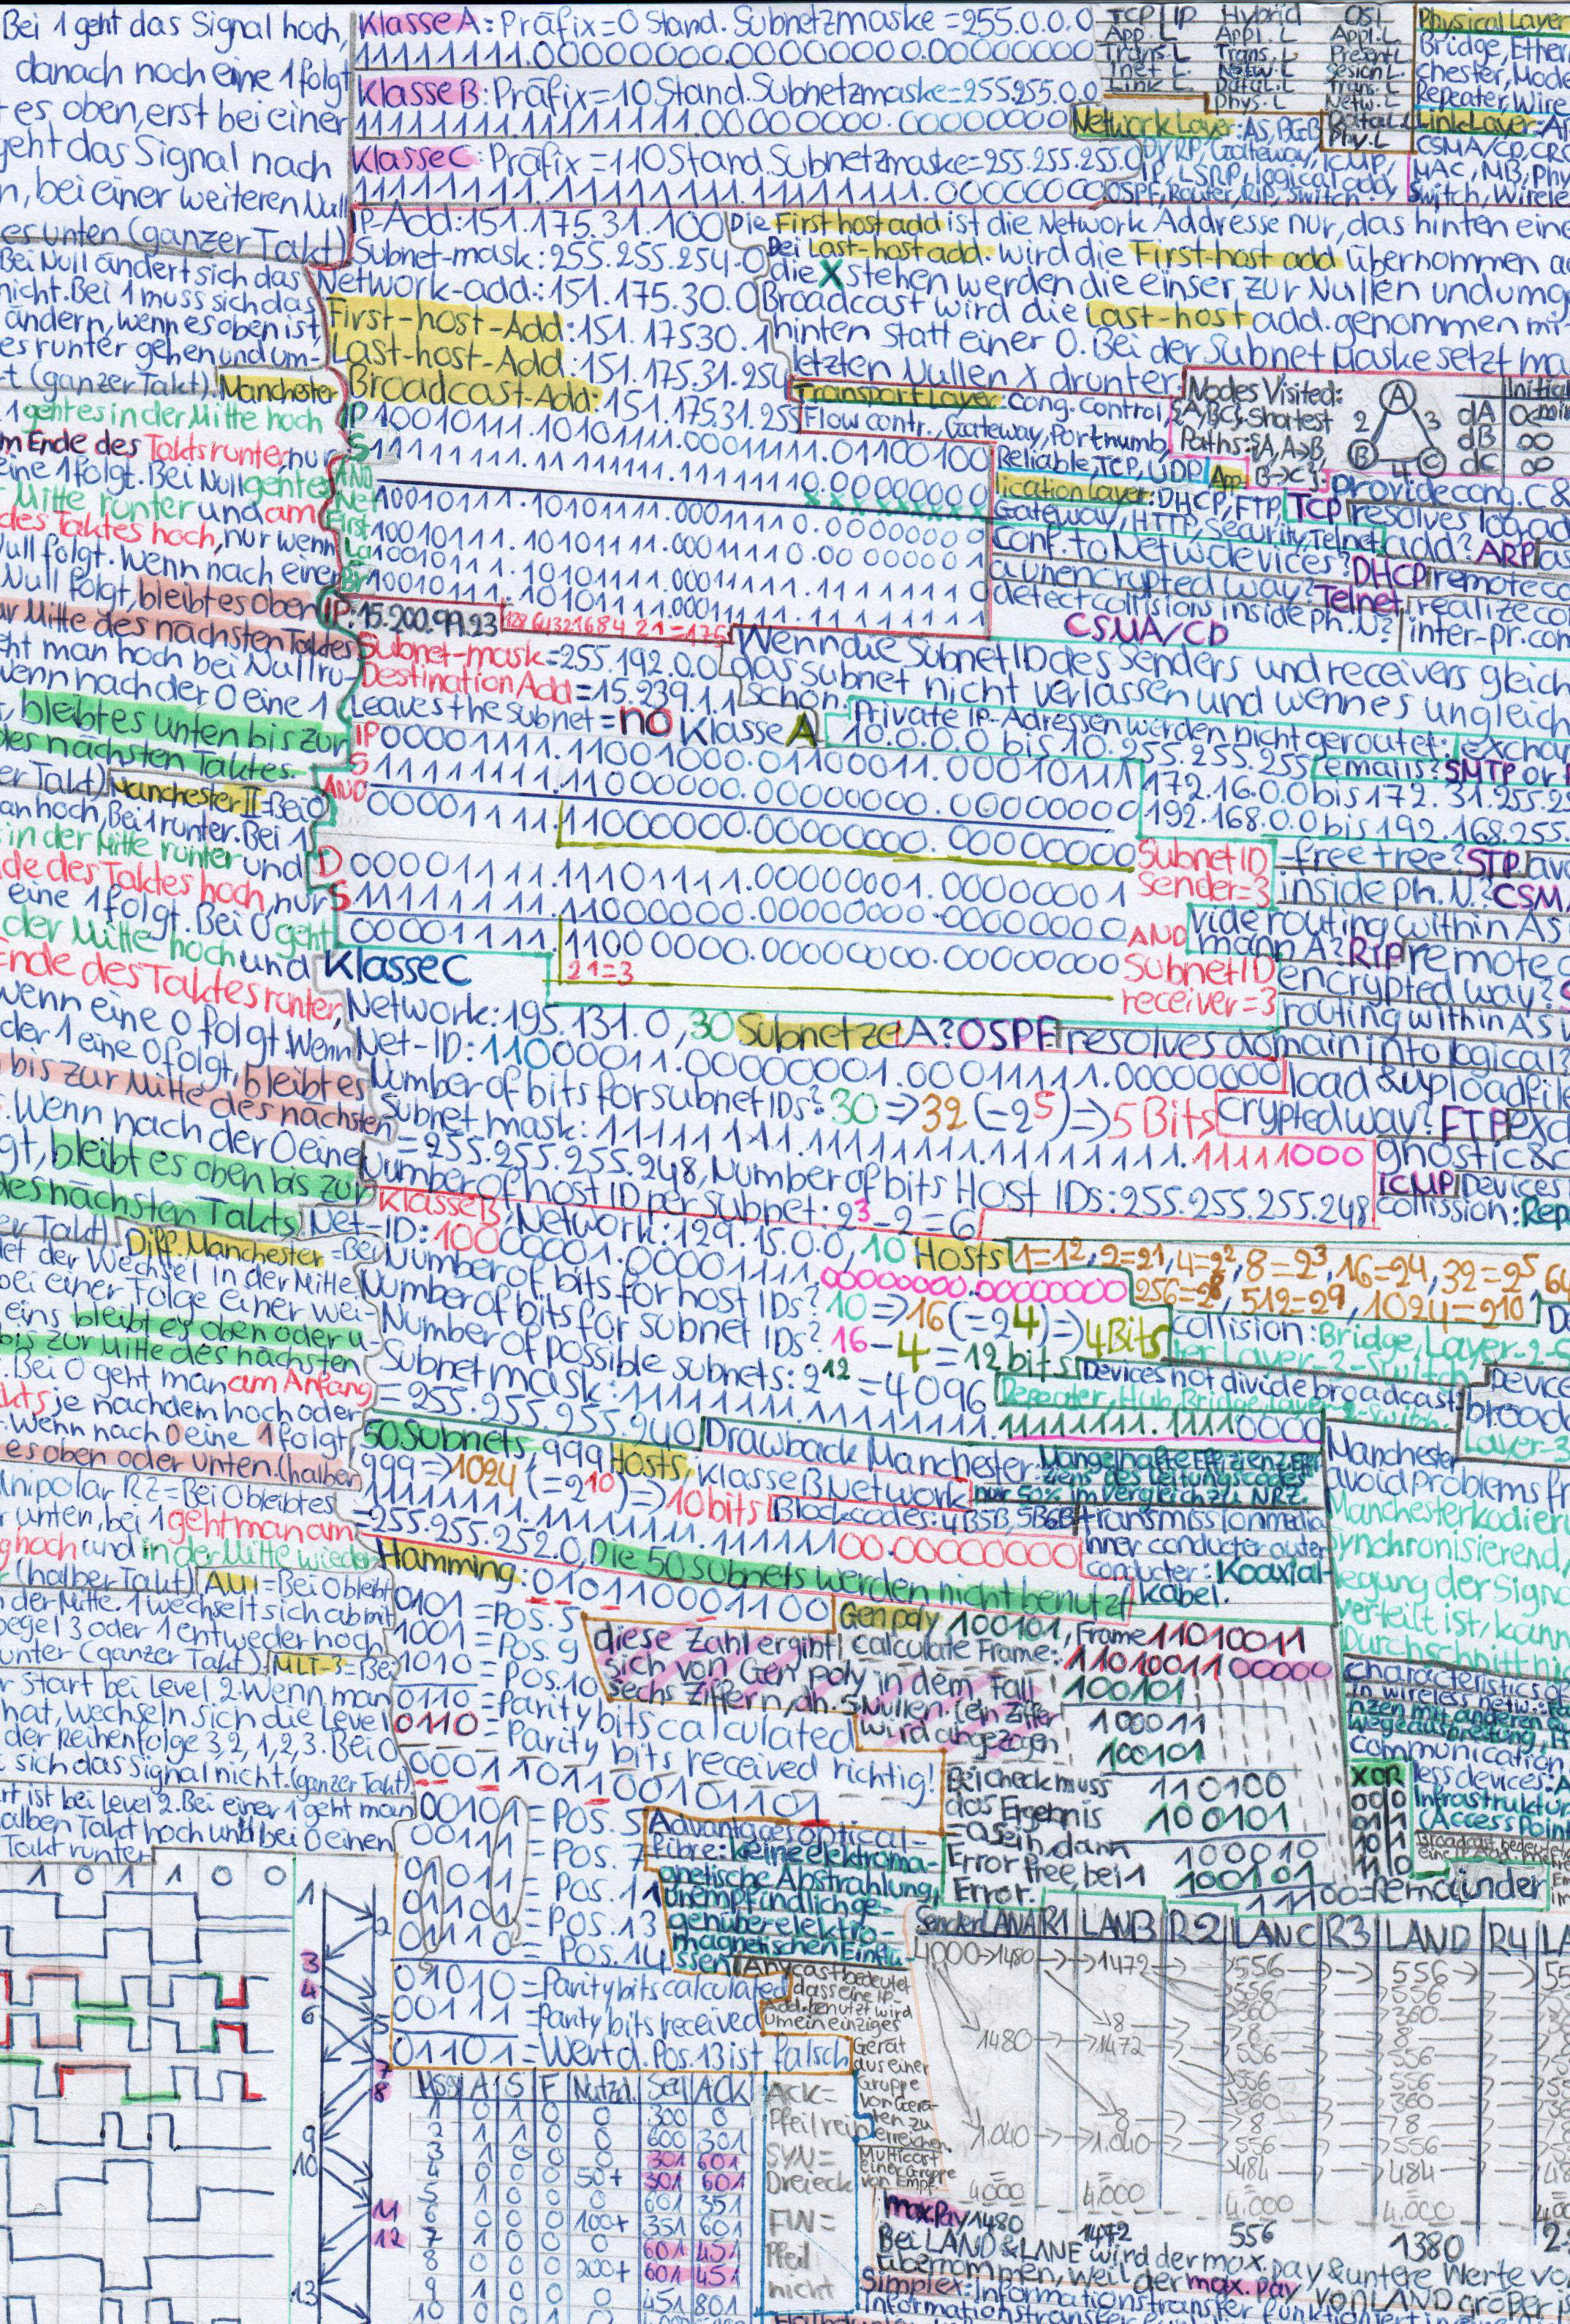 Bei 1 geht das Signal hoch,
danach noch eine 1 folgt
es oben, erst bei einer
geht das Signal nach
n, bei einer weiteren Null
es unten (ganzer Takt)
Bei Null ändert sich das
nicht. Bei 1 muss sich das
ändern, wenn es oben ist,
es runter gehen und um-
t (ganzer Takt). Manchester
1 geht es in der Mitte hoch
m Ende des Takts runter, nur
eine 1 folgt. Bei Null geht es
Mitte runter und am
des Taktes hoch, nur wenn
Null folgt. Wenn nach einer
Null folgt, bleibt es oben
ur Mitte des nächsten Taktes
eht man hoch bei Null ru-
wenn nach der 0 eine 1
, bleibt es unten bis zur
des nächsten Taktes.
er Takt) Manchester II = Bei 0
an hoch, Bei 1 runter. Bei 1
in der Mitte runter und
de des Taktes hoch, nur
eine 1 folgt. Bei 0 geht
der Mitte hoch und
Ende des Taktes runter,
wenn eine 0 folgt. Wenn
der 1 eine 0 folgt, bleibt es
bis zur Mitte des nächsten
. Wenn nach der 0 eine
gt, bleibt es oben bis zur
des nächsten Takts.
er Takt) Diff. Manchester = Bei
det der Wechsel in der Mitte
bei einer Folge einer wei-
eins bleibt es oben oder u-
bis zur Mitte des nächsten
. Bei 0 geht man am Anfang
kts je nachdem hoch oder
. Wenn nach 0 eine 1 folgt
es oben oder unten. (halber
Unipolar RZ = Bei 0 bleibt es
r unten, bei 1 geht man am
g hoch und in der Mitte wieder
(halber Takt) AMI = Bei 0 bleibt
n der Mitte. 1 wechselt sich ab mit
pegel 3 oder 1 entweder hoch
unter (ganzer Takt) MLT-3 = Bei
r Start bei Level 2. Wenn man
hat, wechseln sich die Level
der Reihenfolge 3, 2, 1, 2, 3. Bei 0
t sich das Signal nicht. (ganzer Takt)
rt ist bei Level 2. Bei einer 1 geht man
alben Takt hoch und bei 0 einen
Takt runter
1 0 1 1 0 0
Klasse A: Präfix = 0 Stand. Subnetzmaske = 255.0.0.0
11111111.00000000.00000000.00000000
Klasse B: Präfix = 10 Stand. Subnetzmaske = 255.255.0.0
11111111.11111111.00000000.00000000
Klasse C: Präfix = 110 Stand. Subnetzmaske = 255.255.255.0
11111111.11111111.11111111.00000000
TCP/IP Hybrid OSI
App. L Appl. L Appl. L
Trans. L Trans. L Present. L
Inet L. Netw. L Session L.
Link L. Data L. L Trans. L
Phys. L Netw. L
Data L. L
Phy. L
Physical Layer
Bridge, Ether
chester, Mode
Repeater, Wire
Link Layer: Ar
CSMA/CD, CRC
MAC, MB, Phy
Switch, Wirele
Network Layer: AS, BGP
DVRP, Gateway, ICMP,
IP, LSRP, logical add,
OSPF, Router, RIP, Switch
IP-Add: 151.175.31.100
Subnet-mask: 255.255.254.0
Network-add.: 151.175.30.0
First-host-Add: 151.175.30.1
Last-host-Add: 151.175.31.254
Broadcast-Add: 151.175.31.255
Die First host add ist die Network Addresse nur, das hinten eine
Bei Last-host add. wird die First-host add übernommen a
die X stehen werden die einser zur Nullen und umg
Broadcast wird die Last-host add. genommen mi
hinten statt einer 0. Bei der Subnet Maske setzt ma
letzten Nullen X drunter.
IP 10010111.10101111.00011111.01100100
S 11111111.11111111.11111110.00000000
AND
Net 10010111.10101111.00011110.00000000
First 10010111.10101111.00011110.00000001
La 10010111.10101111.00011111.11111110
Br 10010111.10101111.00011111.11111111
Transport Layer: Cong. Control,
Flow contr., Gateway, Portnumb,
Reliable, TCP, UDP
Application Layer: DHCP, FTP,
Gateway, HTTP, Security, Telnet
Nodes Visited:
{A,B,C}, Shortest
Paths: {A, A→B,
B→C}
A B C
2 3 4
Initial
dA 0
dB ∞
dC ∞
provide cong. C &
TCP resolves log. ad
add? ARP as
Conf. to Netw. devices? DHCP remote co
a unencrypted way? Telnet realize co
detect collisions inside ph. N? inter-pr. com
CSMA/CD
IP: 15.200.99.23
128 64 32 16 8 4 2 1 = 175
Subnet-mask = 255.192.0.0
Destination Add = 15.239.1.1
Leaves the subnet = no Klasse A
Wenn die Subnet ID des Senders und receivers gleich
das subnet nicht verlassen und wenn es ungleich
schon.
Private IP-Adressen werden nicht geroutet:
10.0.0.0 bis 10.255.255.255
172.16.0.0 bis 172.31.255.25
192.168.0.0 bis 192.168.255.
exchan
emails? SMTP or
IP 00001111.11001000.01100011.00010111
S 11111111.11000000.00000000.00000000
AND
00001111.11000000.00000000.00000000
Subnet ID
Sender = 3
D 00001111.11101111.00000001.00000001
S 11111111.11000000.00000000.00000000
AND
00001111.11000000.00000000.00000000
21=3
Subnet ID
receiver = 3
-free tree? STP av
inside ph. N? CSM
vide routing within AS
mann A? RIP remote c
encrypted way?
routing within AS v
A? OSPF resolves domain into logical?
load & upload file
crypted way? FTP exc
gnostic & c
ICMP Devices
collission: Rep
Klasse C
Network: 195.131.0, 30 Subnetze
Net-ID: 11000011.00000001.00011111.00000000
Number of bits for subnet IDs? 30 => 32 (=2^5) => 5 Bits
Subnet mask: 11111111.11111111.11111111.11111000
= 255.255.255.248, Number of bits Host IDs: 255.255.255.248
Number of host ID per subnet: 2^3-2=6
Klasse B, Network: 129.15.0.0, 10 Hosts
Net-ID: 10000001.00001111.00000000.00000000
Number of bits for host IDs? 10 => 16 (=2^4) => 4 Bits
Number of bits for subnet IDs? 16-4=12 bits
Number of possible subnets: 2^12 = 4096
Subnet mask: 11111111.11111111.11111111.11110000
= 255.255.255.240
1=1^2, 2=2^1, 4=2^2, 8=2^3, 16=2^4, 32=2^5, 64
256=2^8, 512=2^9, 1024=2^10
collision: Bridge, Layer-2-S
ter Layer-3-Switch
Devices not divide broadcast:
Repeater, Hub, Bridge, Layer-2-Switch.
Device
broad
Layer-3
50 Subnets, 999 Hosts, Klasse B Network
999 => 1024 (=2^10) => 10 bits
11111111.11111111.11111100.00000000
= 255.255.252.0, Die 50 Subnets werden nicht benutzt
Drawback Manchester: Mangelhafte Effizienz, Effi
zienz des Leitungscodes
nur 50% im Vergleich zu NRZ.
Blockcodes: 4B5B, 5B6B
transmission media
Inner conducter outer
conducter: Koaxial-
kabel.
Manchester
avoid problems fr
Manchesterkodieru
Synchronisierend,
egung der Signa
verteilt ist, kann
Durchschnitt nic
Characteristics of
in wireless netw.: I
nzen mit anderen
Wegeausbreitung,
communication,
less devices: A
Infrastruktur
(Access Point
XOR
00 0
01 1
10 1
11 0
Hamming: 010110001100
0101 = POS. 5
1001 = POS. 9
1010 = POS. 10
0110 = Parity bits calculated
0110 = Parity bits received richtig!
000110110010110 1
00101 = POS. 5
00111 = POS. 7
01011 = POS. 11
01101 = POS. 13
01110 = POS. 14
01010 = Parity bits calculated
00111 = Parity bits received
01101 = Wert d. Pos. 13 ist falsch
Gen poly 100101, Frame 11010011
calculate Frame: 1101001100000
diese Zahl ergibt
sich von Gen poly in dem Fall
sechs Ziffern, dh. 5 Nullen. (ein Ziffer
wird abgezogen
100101
100011
100101
110100
100101
100010
100101
11100 = remainder
Bei check muss
das Ergebnis
= 0 sein, dann
Error free, bei 1
Error.
Advantages optical-
Fibre: keine elektroma-
gnetische Abstrahlung,
unempfindlich ge-
genüber elektro-
magnetischen Einflü-
ssen
Anycast bedeutet
dass eine IP
Add. benutzt wird
um ein einziges
Gerät
aus einer
Gruppe
von Gerä-
ten zu
erreichen.
Multicast
einer Gruppe
von Empf.
1
2
3
4
5
6
7
8
9
10
11
12
13
Msg A S F Nutzd. Seq ACK
1 0 1 0 0 300 0
2 1 1 0 0 600 301
3 1 0 0 0 301 601
4 0 0 0 50+ 301 601
5 1 0 0 0 601 351
6 0 0 0 100+ 351 601
7 1 0 0 0 601 451
8 0 0 0 200+ 601 451
9 1 0 0 0 451 801
ACK =
Pfeil rein
SYN =
Dreieck
FIN =
Pfeil
nicht
Sender LAN A R1 LAN B R2 LAN C R3 LAN D R4 LA
4000 → 1480 → 1472 → 556 → 556
556 556
360 360
8 8 8
1480 → 1472 → 556 → 556
556 556
360 360
8 8 8
1.040 → 1.040 → 556 → 556
484 484
4.000 4.000 4.000 4.000
max. Pay 1480 1472 556 1380
Bei LAN D & LAN E wird der max. pay & untere Werte vo
übernommen, weil der max. pay von LAN D größer is
Simplex: Informationstransfer funktioniert